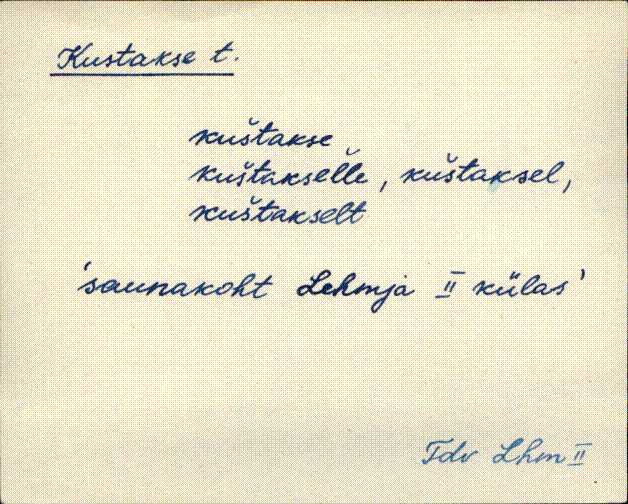 Kustakse t.
kuštakse
kuštakselle, kuštaksel,
kuštakselt
'saunakoht Lehmja II külas'
Tdv Lhm II